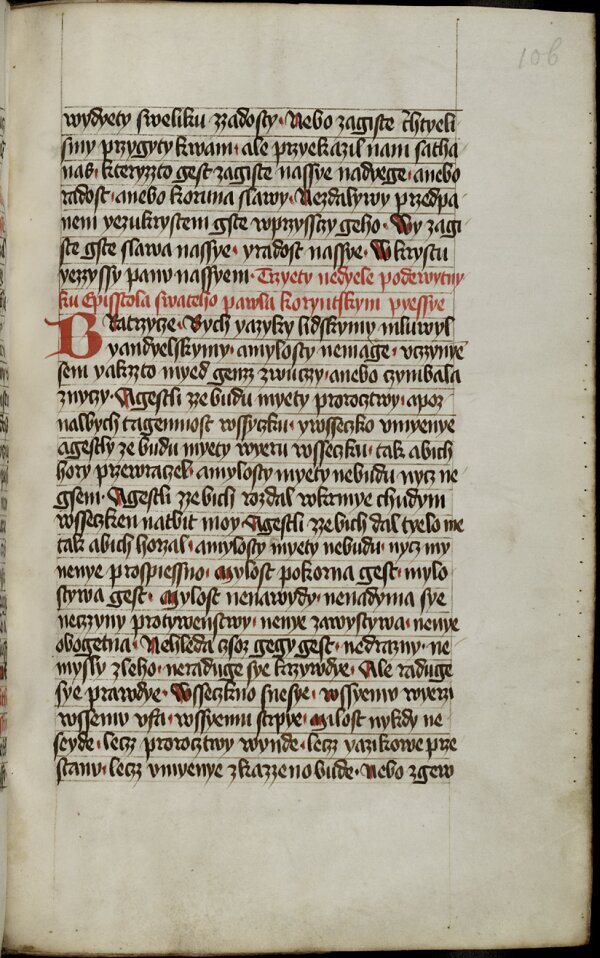 106
wydyety sweliku zzadosty · Nebo zagiste chtyeli
smy przygyty kwam · ale przyekazil nam satha
nas · kteryzzto gest zagiste nassye nadyege · anebo
radost · anebo koruna slawy · Nezdalywy przedpa
nem yezukrystem gste wprzysszy geho · Wy zagi
ste gste slawa nassye · yradost nassye · Wkrystu
yezzyssy panw nassyem · Trzyety nedyele podewytny
ku Episstola swateho pawla koryntskym pyessye
Bratrzyze · Bych yazyky lidskymy mluwyl
yandyelskymy · amylosty nemage · vczynye
sem yakzto myed genz zwuczy · anebo czymbala
znyczy · Agestli zze budu myety prorocztwy · apoz
nalbych tagemnost wssyczku · ywsseczko vmyenye
agestly ze budu myety wyeru wsseczku · tak abich
hory przewraczel · amylosty myety nebudu nycz ne
gsem · Agestli zze bich rozdal wkrmye chudym
wsseczken natbit moy · Agestli zze bich dal tyelo me
tak abich horzal · amylosty myety nebudu · nycz my
nenye prospiessno · Mylost pokorna gest · mylo
stywa gest · Mylost nenawydy · nenadyma sye
neczyny protywenstwy · nenye zawystywa · nenye
obogetna · Nehleda czsoz gegy gest · nedrazny · ne
mysly zleho · neraduge sye krzywdye · Ale raduge
sye prawdye · Wsseczkno snesye · wssyemu wyerzi
wssemu vfa · wssyemu strpye · Milost nykdy ne
seyde · lecz prorocztwy wynde · lecz yazikowe prze
stanu · lecz vmyenye zkazzeno bude · Nebo zgew